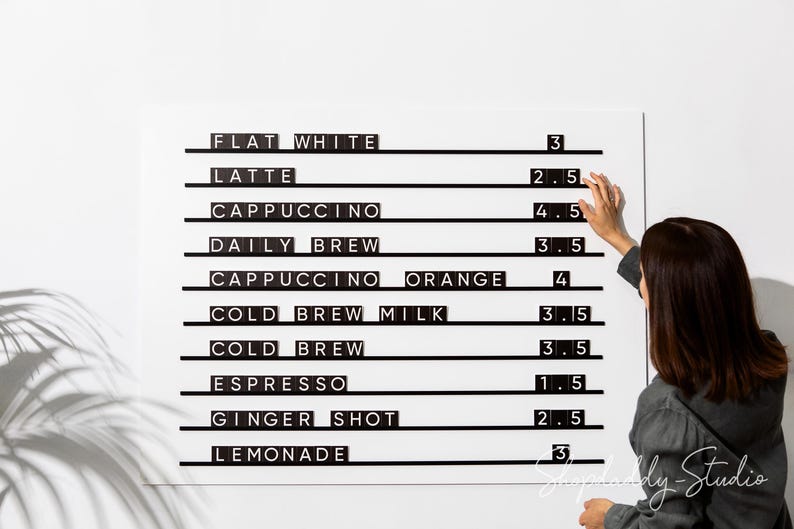 FLAT WHITE 3
LATTE 2.5
CAPPUCCINO 4.5
DAILY BREW 3.5
CAPPUCCINO ORANGE 4
COLD BREW MILK 3.5
COLD BREW 3.5
ESPRESSO 1.5
GINGER SHOT 2.5
LEMONADE 3
Shopdaddy-Studio